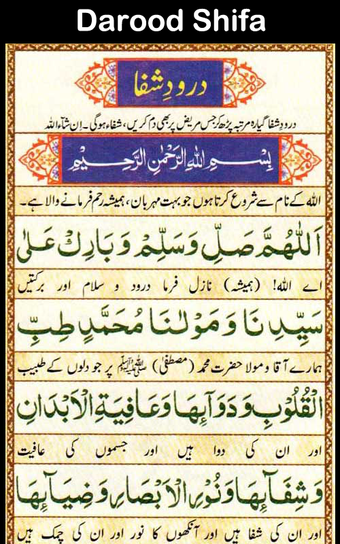 Darood Shifa
درودِ شفا
درودِ شفا گیارہ مرتبہ پڑھ کر جس مریض پر بھی دَم کریں، شفاء ہوگی۔ اِن شآء اللہ
بِسْمِ اللهِ الرَّحْمٰنِ الرَّحِيْمِ
اللہ کے نام سے شروع کرتا ہوں جو بہت مہربان، ہمیشہ رحم فرمانے والا ہے۔
اَللّٰهُمَّ صَلِّ وَسَلِّمْ وَبَارِكْ عَلٰى
اے اللہ! (ہمیشہ) نازل فرما درود و سلام اور برکتیں
سَيِّدِنَا وَمَوْلٰنَا مُحَمَّدٍ طِبِّ
ہمارے آقا و مولا حضرت محمد (مصطفٰی) ﷺ پر جو دلوں کے طبیب
الْقُلُوْبِ وَدَوَآئِهَا وَعَافِيَةِ الْاَبْدَانِ
اور ان کی دوا ہیں اور جسموں کی عافیت
وَشِفَآئِهَا وَنُوْرِ الْاَبْصَارِ وَضِيَآئِهَا
اور ان کی شفا ہیں اور آنکھوں کا نور اور ان کی چمک ہیں